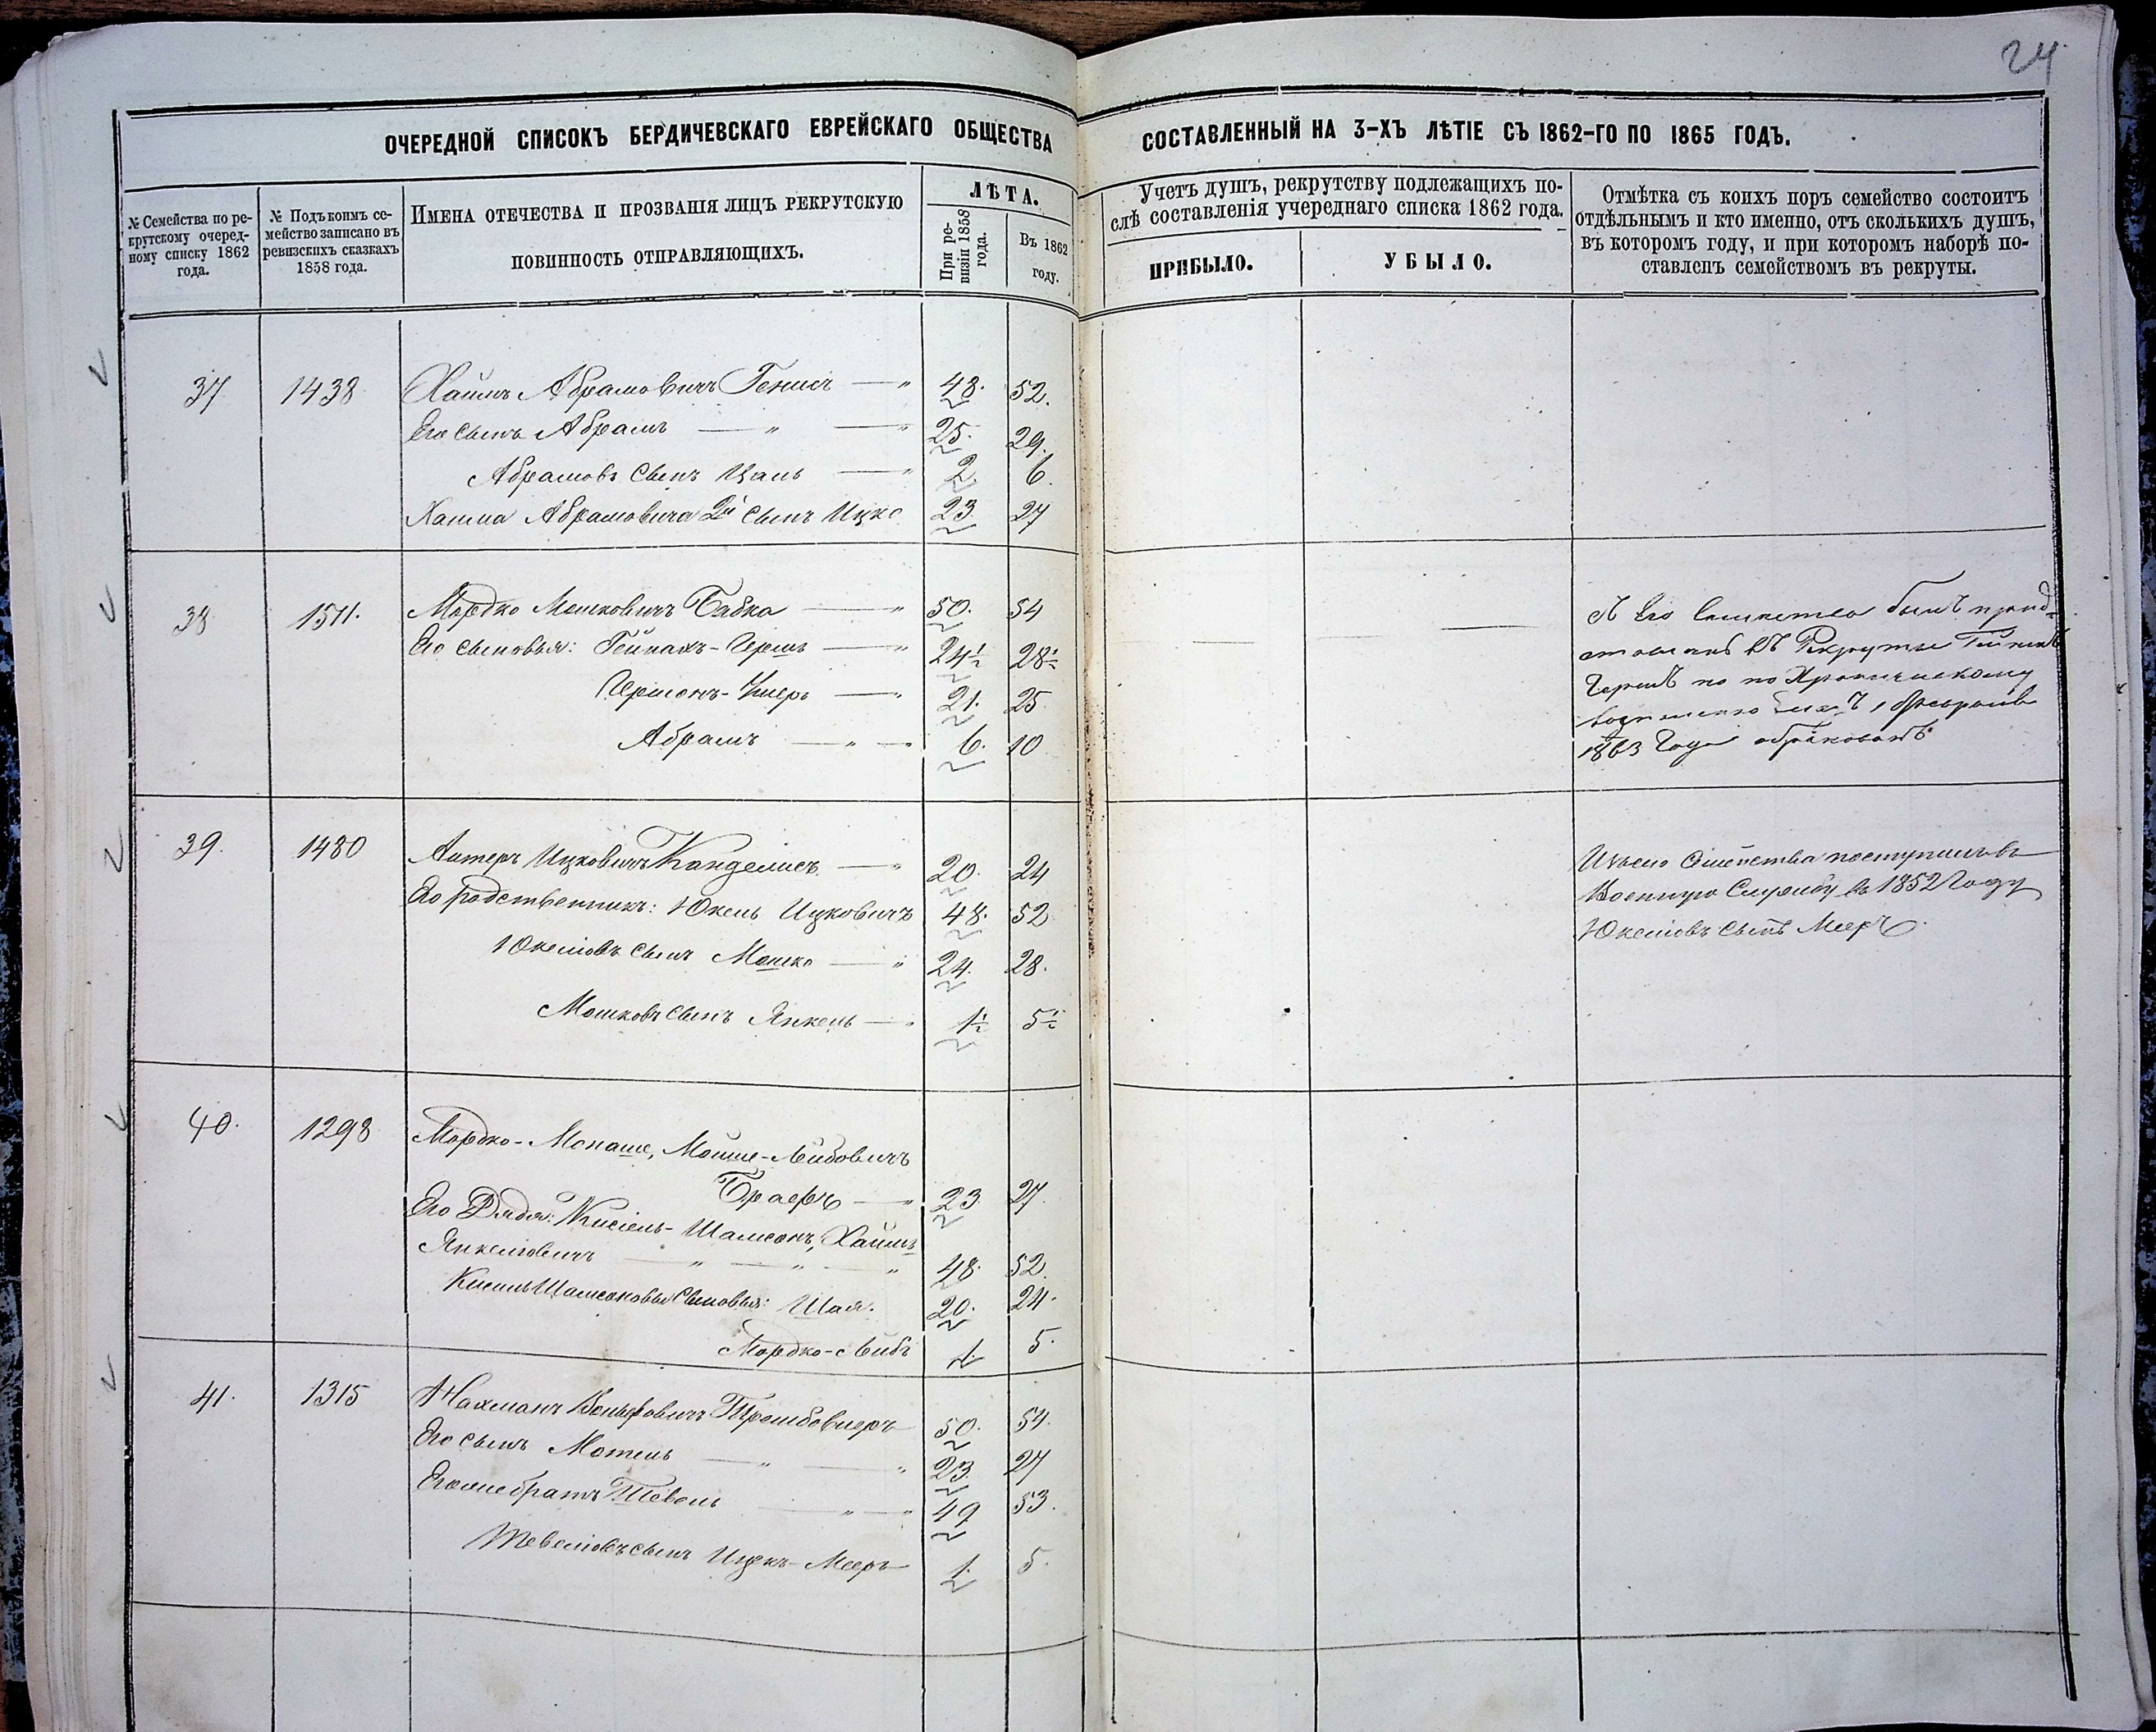 24
ОЧЕРЕДНОЙ СПИСОКЪ БЕРДИЧЕВСКАГО ЕВРЕЙСКАГО ОБЩЕСТВА
СОСТАВЛЕННЫЙ НА 3-ХЪ ЛѢТІЕ СЪ 1862-ГО ПО 1865 ГОДЪ.
№ Семейства по ре-
крутскому очеред-
ному списку 1862
года.
№ Подъ коимъ се-
мейство записано въ
ревизскихъ сказкахъ
1858 года.
ИМЕНА ОТЕЧЕСТВА И ПРОЗВАНІЯ ЛИЦЪ РЕКРУТСКУЮ
ПОВИННОСТЬ ОТПРАВЛЯЮЩИХЪ.
ЛѢТА.
При ре-
визіи 1858
года.
Въ 1862
году.
Учетъ душъ, рекрутству подлежащихъ по-
слѣ составленія учереднаго списка 1862 года.
ПРИБЫЛО.
УБЫЛО.
Отмѣтка съ коихъ поръ семейство состоитъ
отдѣльнымъ и кто именно, отъ сколькихъ душъ,
въ которомъ году, и при которомъ наборѣ по-
ставленъ семействомъ въ рекруты.
37 1438 Хаимъ Абрамовичъ Генисъ — " 48. 52.
Его сынъ Абрамъ — " — " 25. 29.
Абрамовъ сынъ Цаль — " 2. 6.
Хаима Абрамовича 2й сынъ Ицко 23 27
38 1511. Мордко Мошковичъ Бабка — " 50. 54
Его сыновья: Гейнахъ-Гершъ — " 24½ 28½
Гершонъ-Умеръ — " 21. 25
Абрамъ — " — 6. 10
Его былъ
въ Рекруты
Гершъ но по Хроническому
1 Февраля
1863 Года обракованъ
39. 1480 Алтеръ Ицковичъ Канделисъ — " 20. 24
Его родственникъ: Юкель Ицковичъ 48. 52
Юкелювъ сынъ Мошко — " 24. 28.
Мошковъ сынъ Янкель — " 1½ 5½
Изъ сего Семейства поступилъ въ
Военную Службу въ 1852 Году
Юкелювъ сынъ Мееръ.
40. 1298 Мордко-Монаше, Мойше-Лейбовичъ
Браеръ — " 23 27.
Его Дядя: Кисіель-Шамсонъ, Хаимъ
Янкелювичъ " — " — " 48. 52.
Кисиль Шамсоновы сыновья: Шая. 20. 24.
Мордко-Лейбъ 1. 5.
41. 1315 Нахманъ Вольфовичъ Трембовлеръ 50. 54.
Его сынъ Мотель — " — " 23. 27
Его же братъ Тевель — " — " 49 53.
Тевелювъ сынъ Ицекъ-Мееръ 1. 5.